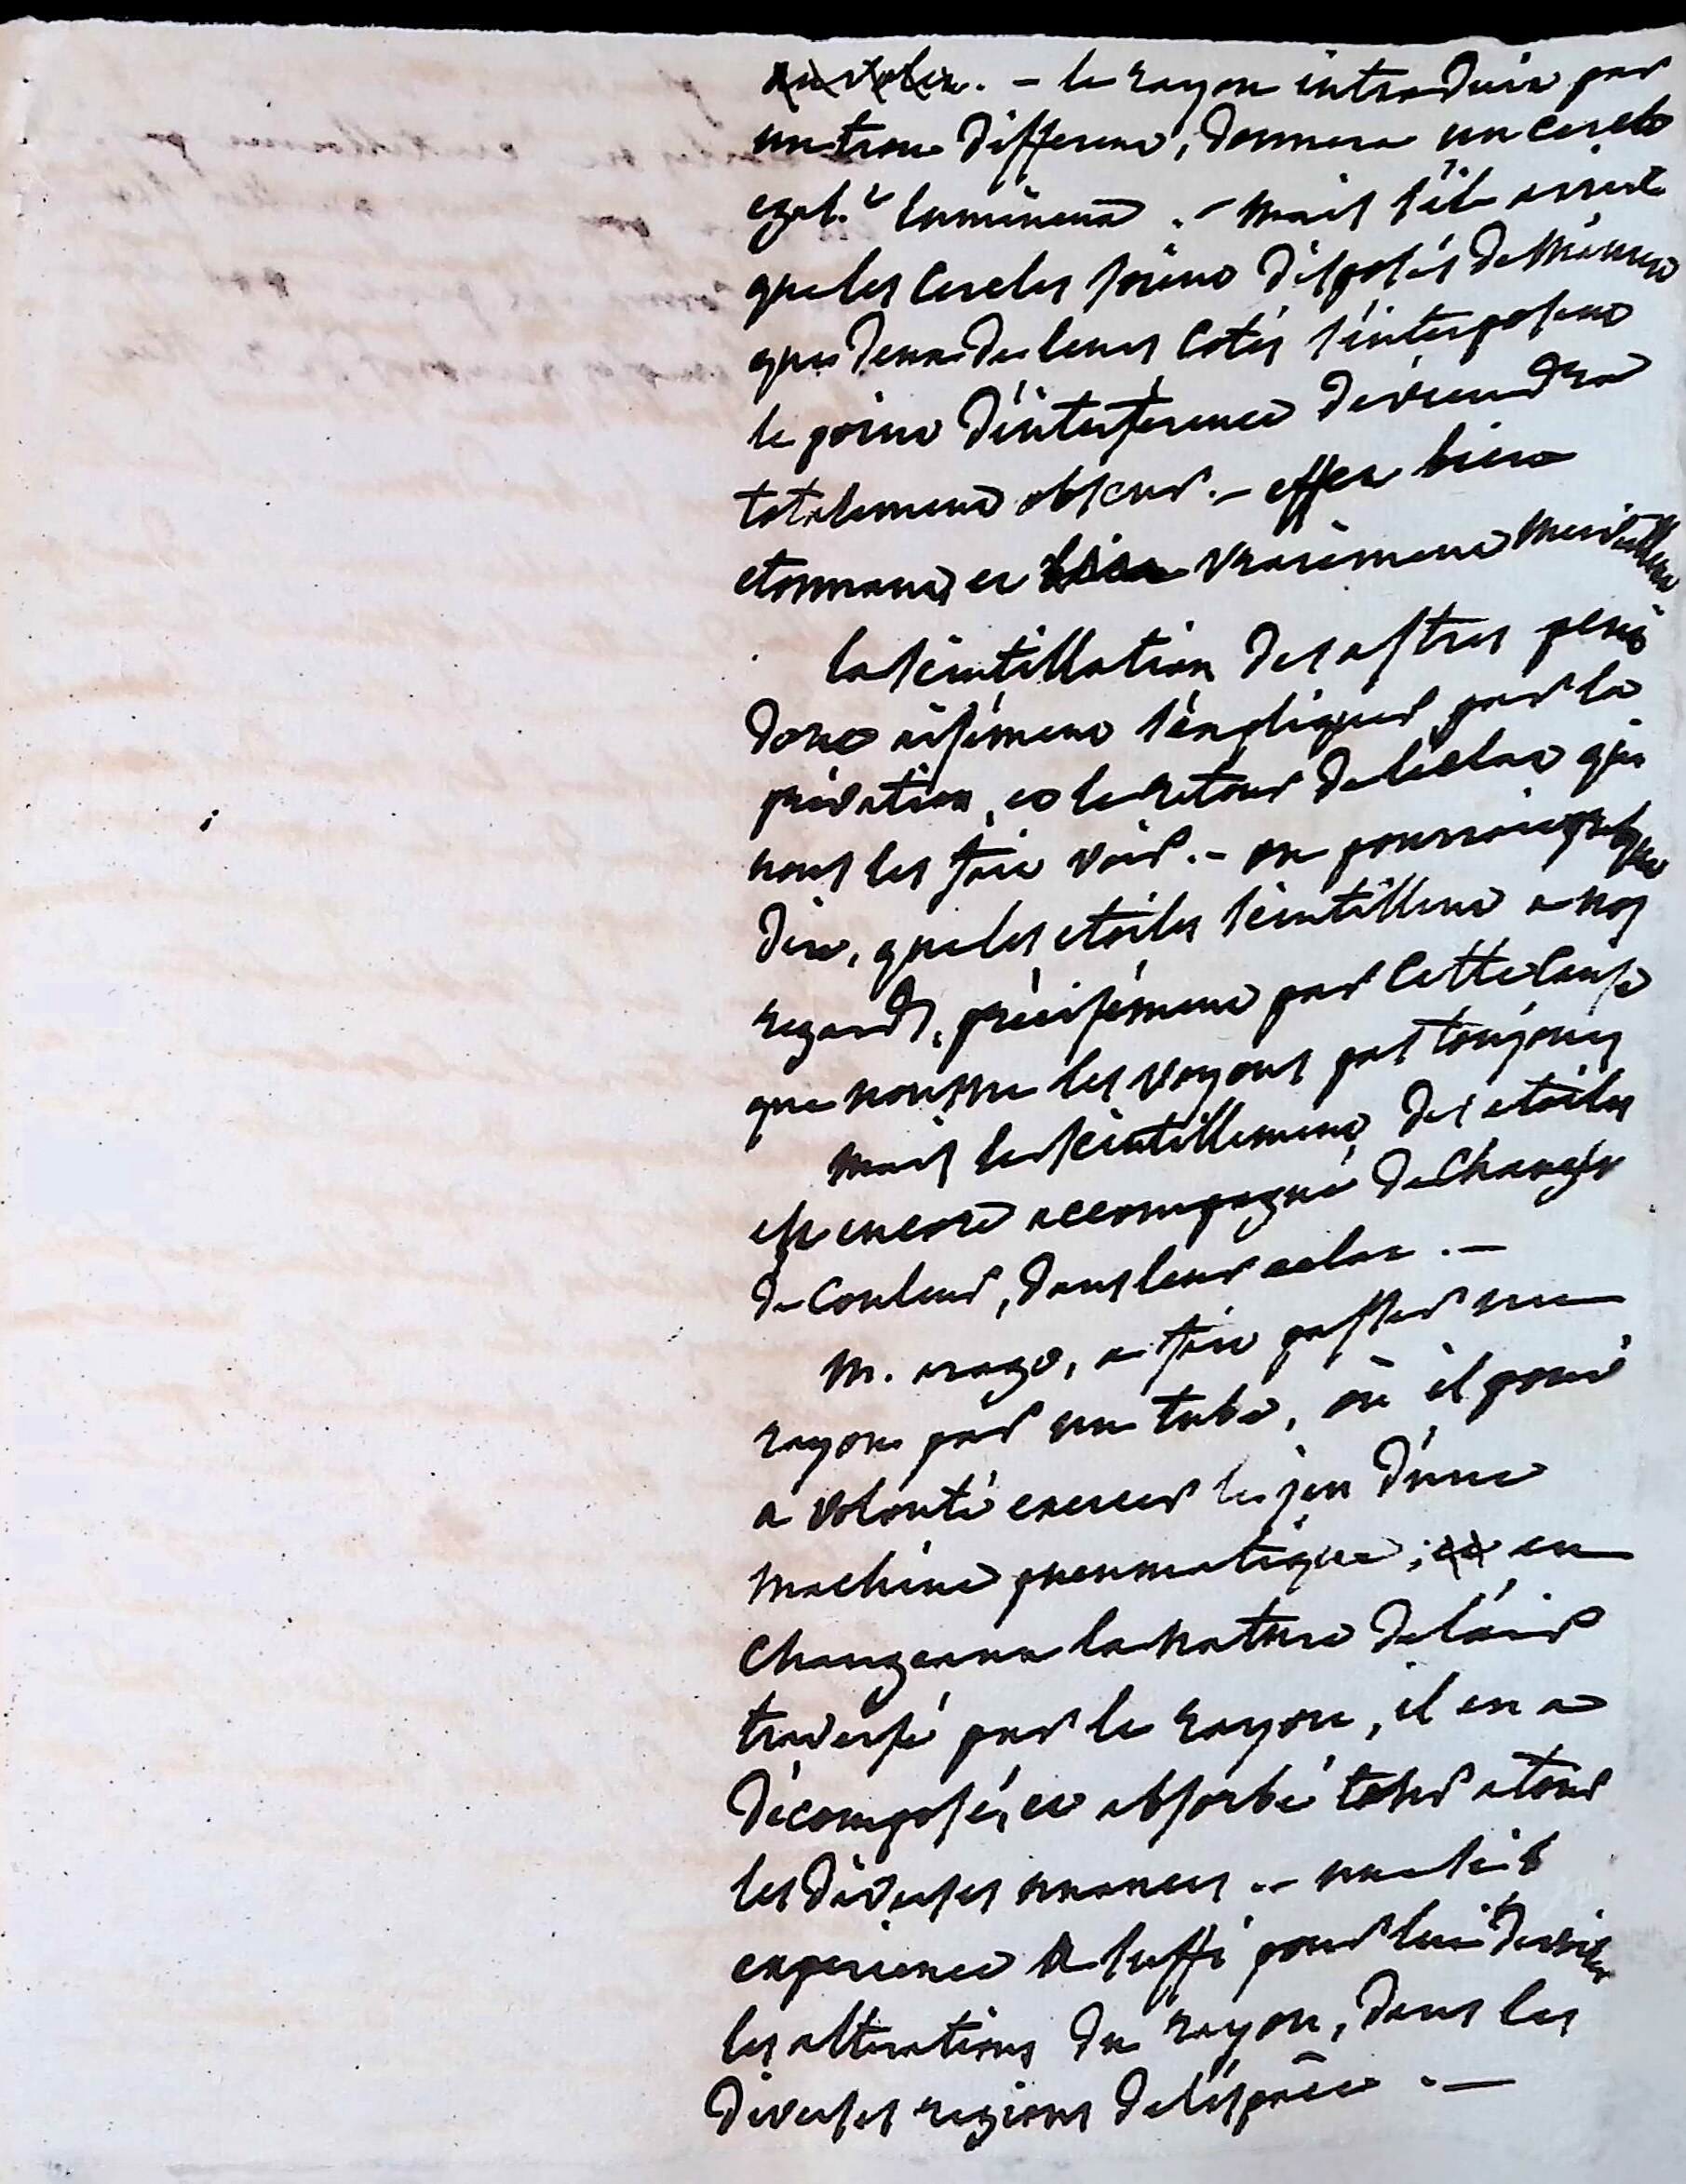 le rayon introduit par
un trou different, donnera un cercle
egal.t lumineux . - mais s'il arrive
que les cercles soient disposés de maniere
que deux de leurs cotés s'interposent
le point d'interference deviendra
totalement obscur. - effet bien
etonnant, et bien vraiment merveilleux
la scintillation des astres peut
donc aisément s'expliquer par la
privation, et le retour de l'éclat qui
nous les fait voir. - on pourrait presque
dire, que les etoiles scintillent a nos
regards, précisément par cette cause
que nous ne les voyons pas toujours
mais le scintillement, des etoiles
est encore accompagné de chang.t
de couleur, dans leur eclat . -
M. arago, a fait passer un
rayon par un tube, où il peut
a volonté exercer le jeu d'une
machine pneumatique ; et en
changeant la nature de l'air
traversé par le rayon, il en a
décomposé, et absorbé tour a tour
les diverses nuances . - une seule
experience a suffi pour lui
les alterations du rayon, dans les
diverses regions de l'espace . -